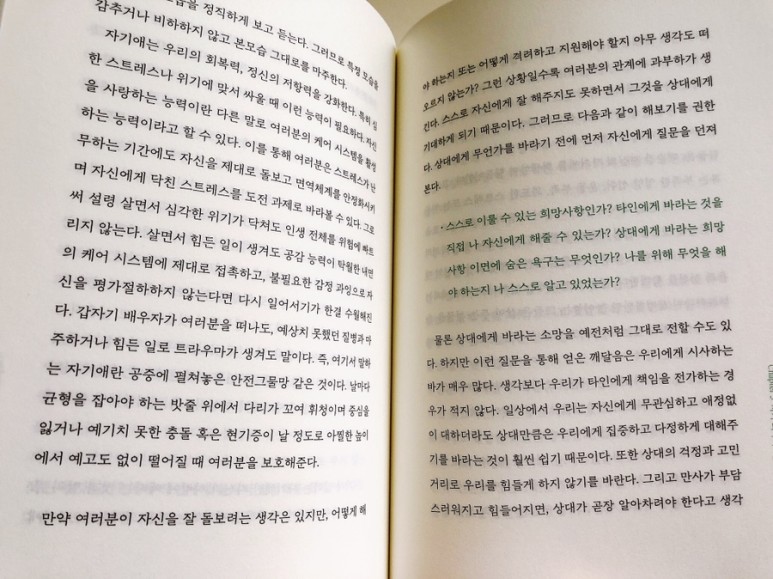 감추거나 비하하지 않고 본모습 그대로를 마주한다.
자기애는 우리의 회복력, 정신의 저항력을 강화한다. 특히 심
한 스트레스나 위기에 맞서 싸울 때 이런 능력이 필요하다. 자신
을 사랑하는 능력이란 다른 말로 여러분의 케어 시스템을 활성
하는 능력이라고 할 수 있다. 이를 통해 여러분은 스트레스가 난
무하는 기간에도 자신을 제대로 돌보고 면역체계를 안정화시키
며 자신에게 닥친 스트레스를 도전 과제로 바라볼 수 있다. 그로
써 설령 살면서 심각한 위기가 닥쳐도 인생 전체를 위험에 빠트
리지 않는다. 살면서 힘든 일이 생겨도 공감 능력이 탁월한 내면
의 케어 시스템에 제대로 접촉하고, 불필요한 감정 과잉으로 자
신을 평가절하하지 않는다면 다시 일어서기가 한결 수월해진
다. 갑자기 배우자가 여러분을 떠나도, 예상치 못했던 질병과 마
주하거나 힘든 일로 트라우마가 생겨도 말이다. 즉, 여기서 말하
는 자기애란 공중에 펼쳐놓은 안전그물망 같은 것이다. 날마다
균형을 잡아야 하는 밧줄 위에서 다리가 꼬여 휘청이며 중심을
잃거나 예기치 못한 충돌 혹은 현기증이 날 정도로 아찔한 높이
에서 예고도 없이 떨어질 때 여러분을 보호해준다.
만약 여러분이 자신을 잘 돌보려는 생각은 있지만, 어떻게 해
야 하는지 또는 어떻게 격려하고 지원해야 할지 아무 생각도 떠
오르지 않는가? 그런 상황일수록 여러분의 관계에 과부하가 생
긴다. 스스로 자신에게 잘 해주지도 못하면서 그것을 상대에게
기대하게 되기 때문이다. 그러므로 다음과 같이 해보기를 권한
다. 상대에게 무언가를 바라기 전에 먼저 자신에게 질문을 던져
본다.
· 스스로 이룰 수 있는 희망사항인가? 타인에게 바라는 것을
직접 나 자신에게 해줄 수 있는가? 상대에게 바라는 희망
사항 이면에 숨은 욕구는 무엇인가? 나를 위해 무엇을 해
야 하는지 나 스스로 알고 있었는가?
물론 상대에게 바라는 소망을 예전처럼 그대로 전할 수도 있
다. 하지만 이런 질문을 통해 얻은 깨달음은 우리에게 시사하는
바가 매우 많다. 생각보다 우리가 타인에게 책임을 전가하는 경
우가 적지 않다. 일상에서 우리는 자신에게 무관심하고 애정없
이 대하더라도 상대만큼은 우리에게 집중하고 다정하게 대해주
기를 바라는 것이 훨씬 쉽기 때문이다. 또한 상대의 걱정과 고민
거리로 우리를 힘들게 하지 않기를 바란다. 그리고 만사가 부담
스러워지고 힘들어지면, 상대가 곧장 알아차려야 한다고 생각